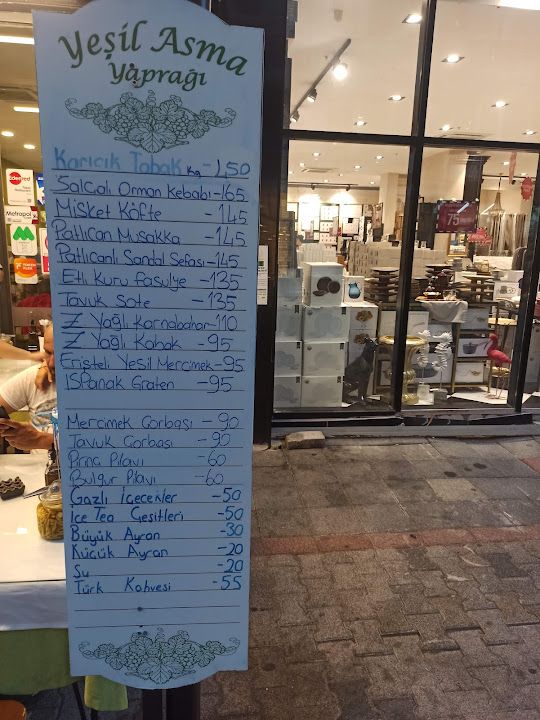 Yeşil Asma
Yaprağı
Karışık Tabak Kg - 150
Salçalı Orman Kebabı - 165
Misket Köfte - 145
Patlıcan Musakka - 145
Patlıcanlı Sandal Sefası - 145
Etli Kuru fasulye - 135
Tavuk Sote - 135
Z Yağlı Karnabahar - 110
Z Yağlı Kabak - 95
Erişteli Yeşil Mercimek - 95
ISPanak Graten - 95
Mercimek Çorbası - 90
Tavuk Çorbası - 90
Pirinç Pilavı - 60
Bulgur Pilavı - 60
Gazlı İçecekler - 50
İce Tea Çeşitleri - 50
Büyük Ayran - 30
Küçük Ayran - 20
Su - 20
Türk Kahvesi - 55
Metropol
75